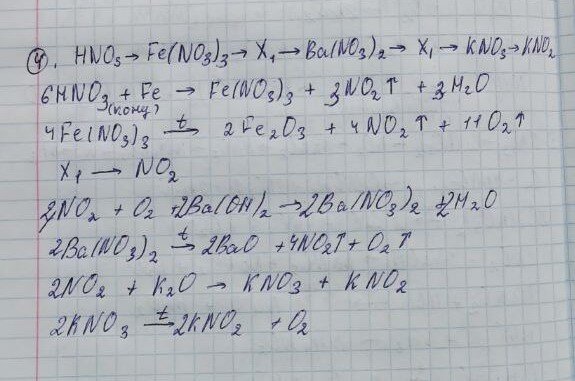 4. HNO₃ → Fe(NO₃)₃ → X₁ → Ba(NO₃)₂ → X₁ → KNO₃ → KNO₂
6HNO₃ + Fe → Fe(NO₃)₃ + 3NO₂↑ + 3H₂O
(конц)
4Fe(NO₃)₃ t→ 2Fe₂O₃ + 4NO₂↑ + 11O₂↑
X₁ → NO₂
NO₂ + O₂ + 2Ba(OH)₂ → 2Ba(NO₃)₂ + 2H₂O
2Ba(NO₃)₂ t→ 2BaO + 4NO₂↑ + O₂↑
2NO₂ + K₂O → KNO₃ + KNO₂
2KNO₃ t→ 2KNO₂ + O₂